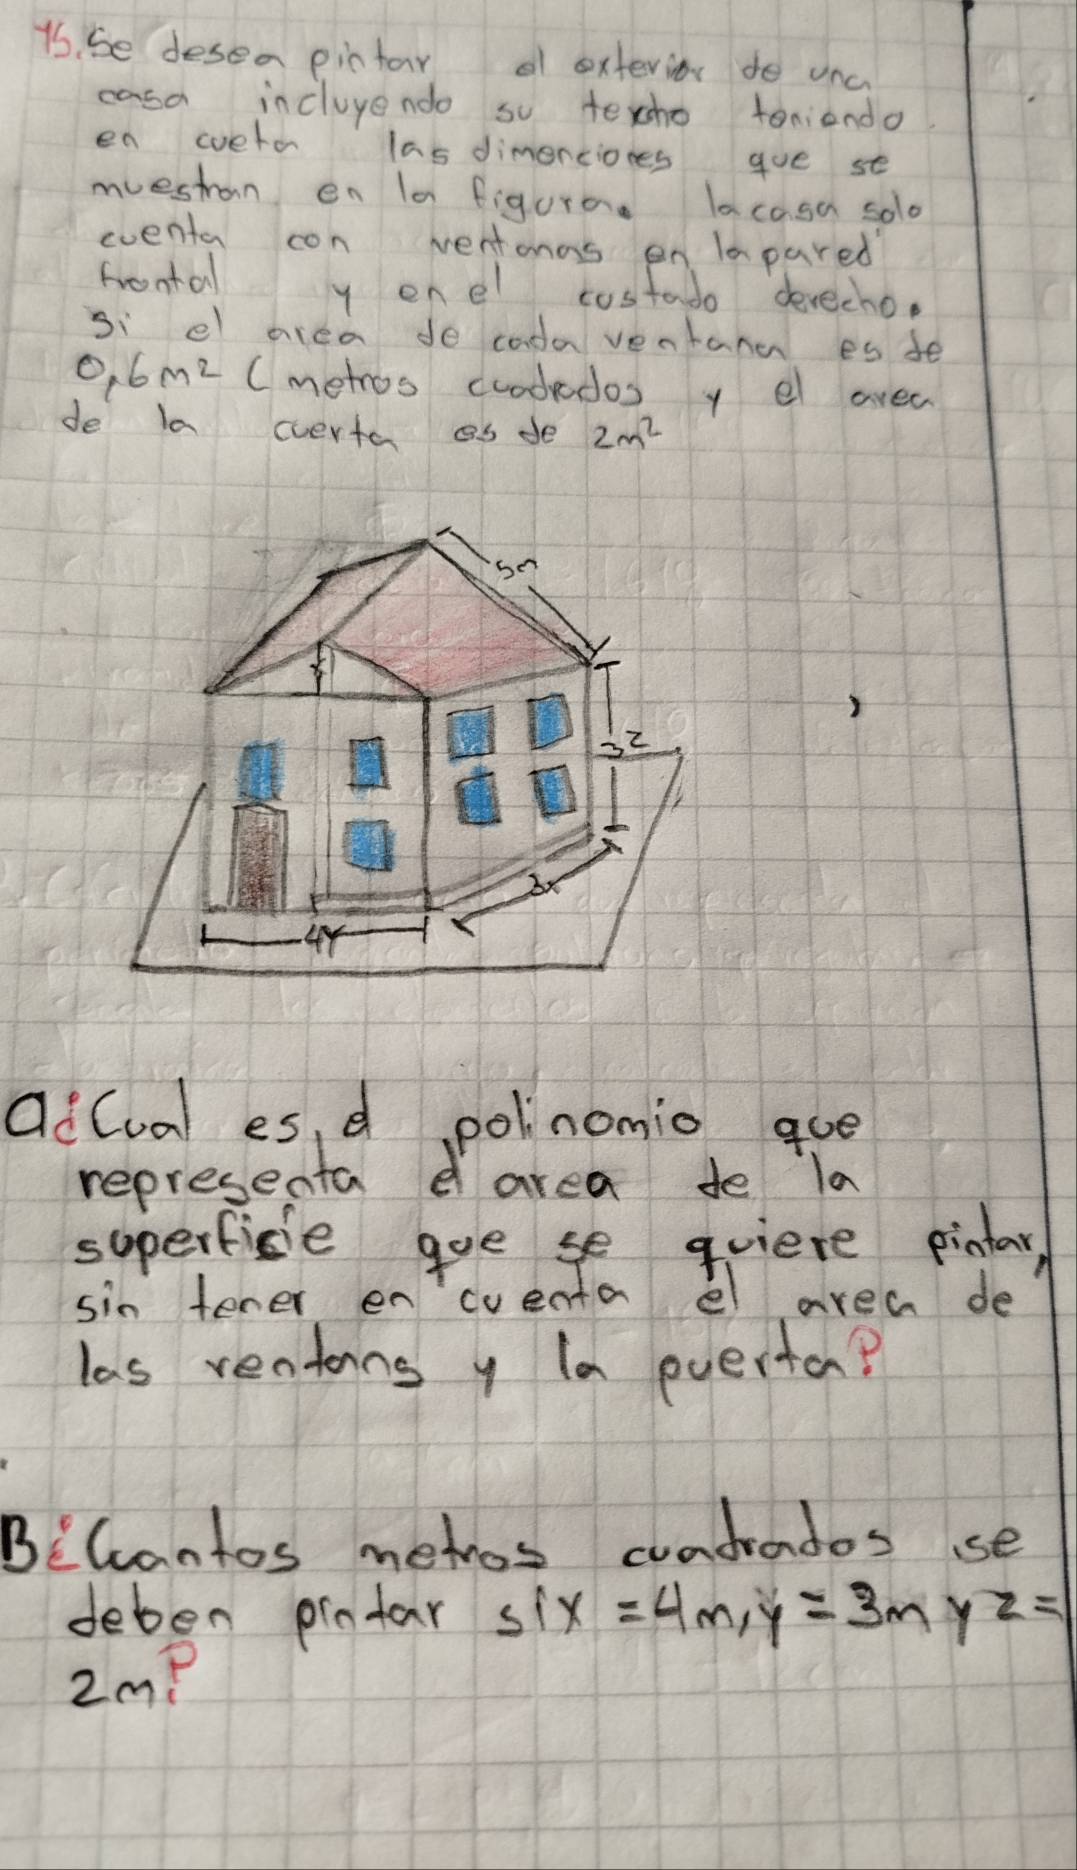 15. Se desea pintar el exterior de una
casa incluyendo su texcho teniendo
en cueta las dimenciones que se
muestran en la figura. la casa solo
cuenta con ventanas en la pared
frontal y en el custado derecho.
si el area de cada ventana es de
0,6m² (metros cuadrados y el area
de la cuerta es de 2m²
5m
3z
3x
4y
a ¿Cual es, el polinomio que
representa el area de la
superficie que se quiere pintar,
sin tener en cuenta el area de
las ventanas y la puerta?
B ¿Cuantos metros cuadrados se
deben pintar si x = 4m, y = 3m y z =
2m?